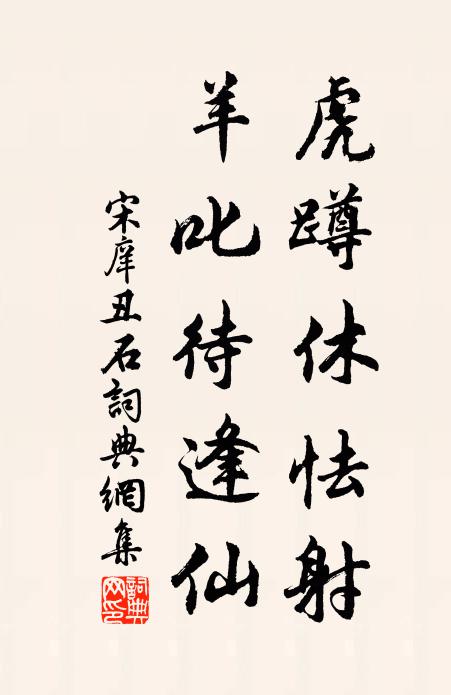 虎蹲休怯射
羊叱待逢仙
宋庠丑石詞典網集